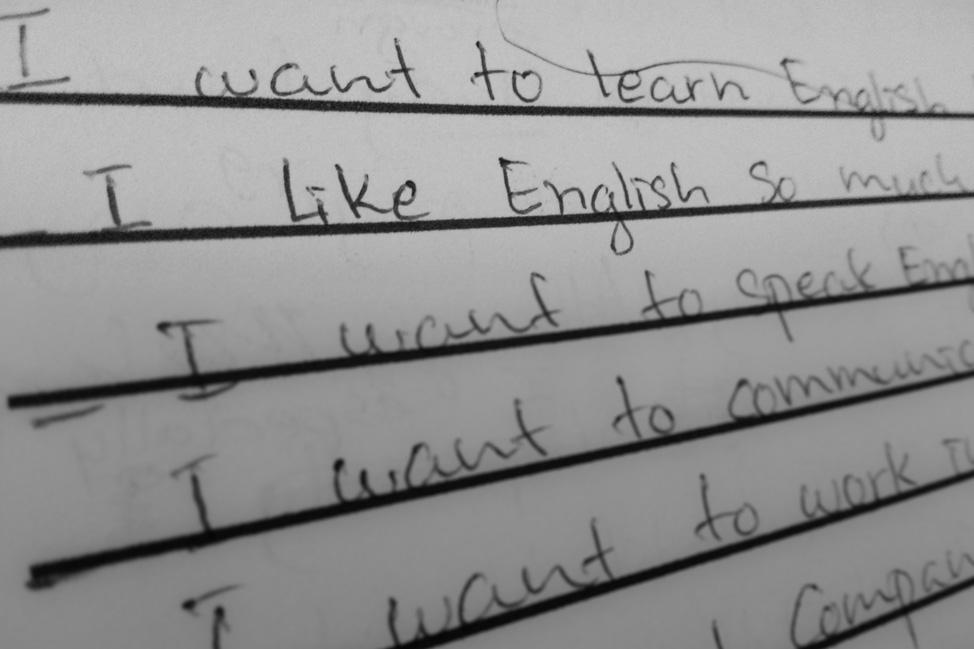 I want to learn English
I Like English So much
I want to speak Eng
I want to communic
I want to work
Compan